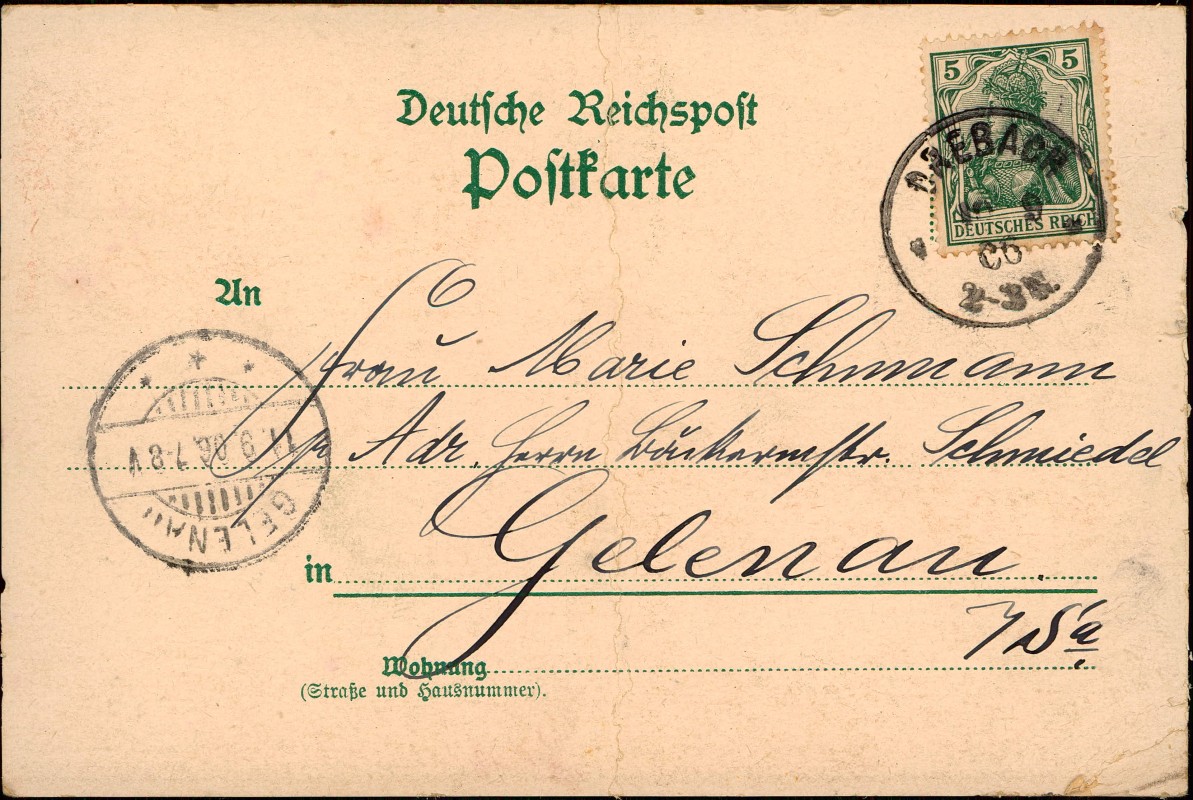 Deutsche Reichspost
Postkarte
5 5
DEUTSCHES REICH
DREBACH
06
2-3N.
An
Frau Marie Schumann
Adr. Herrn Bäckermstr. Schmiedel
in Gelenau.
i/Sa
Wohnung
(Straße und Hausnummer).
9.06.7-8V
GELENAU